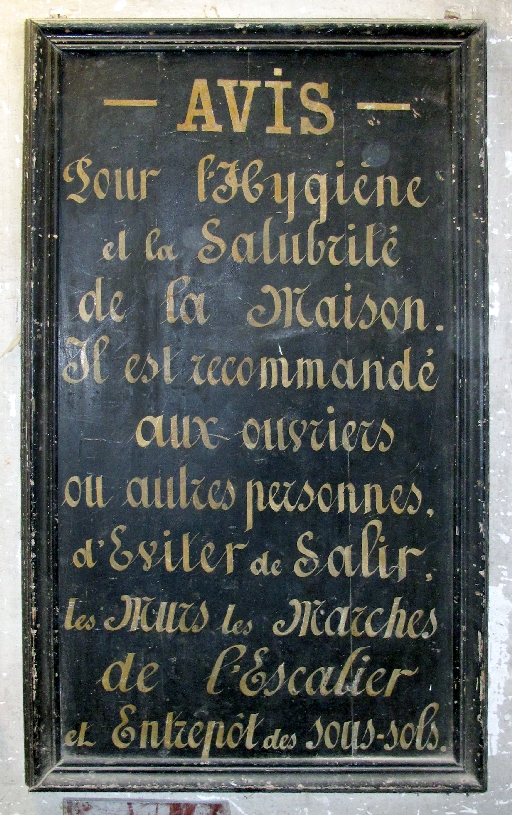 — AVIS —
Pour l'Hygiène
et la Salubrité
de la Maison.
Il est recommandé
aux ouvriers
ou autres personnes,
d'Eviter de Salir,
les Murs les Marches
de l'Escalier
et Entrepôt des sous-sols.